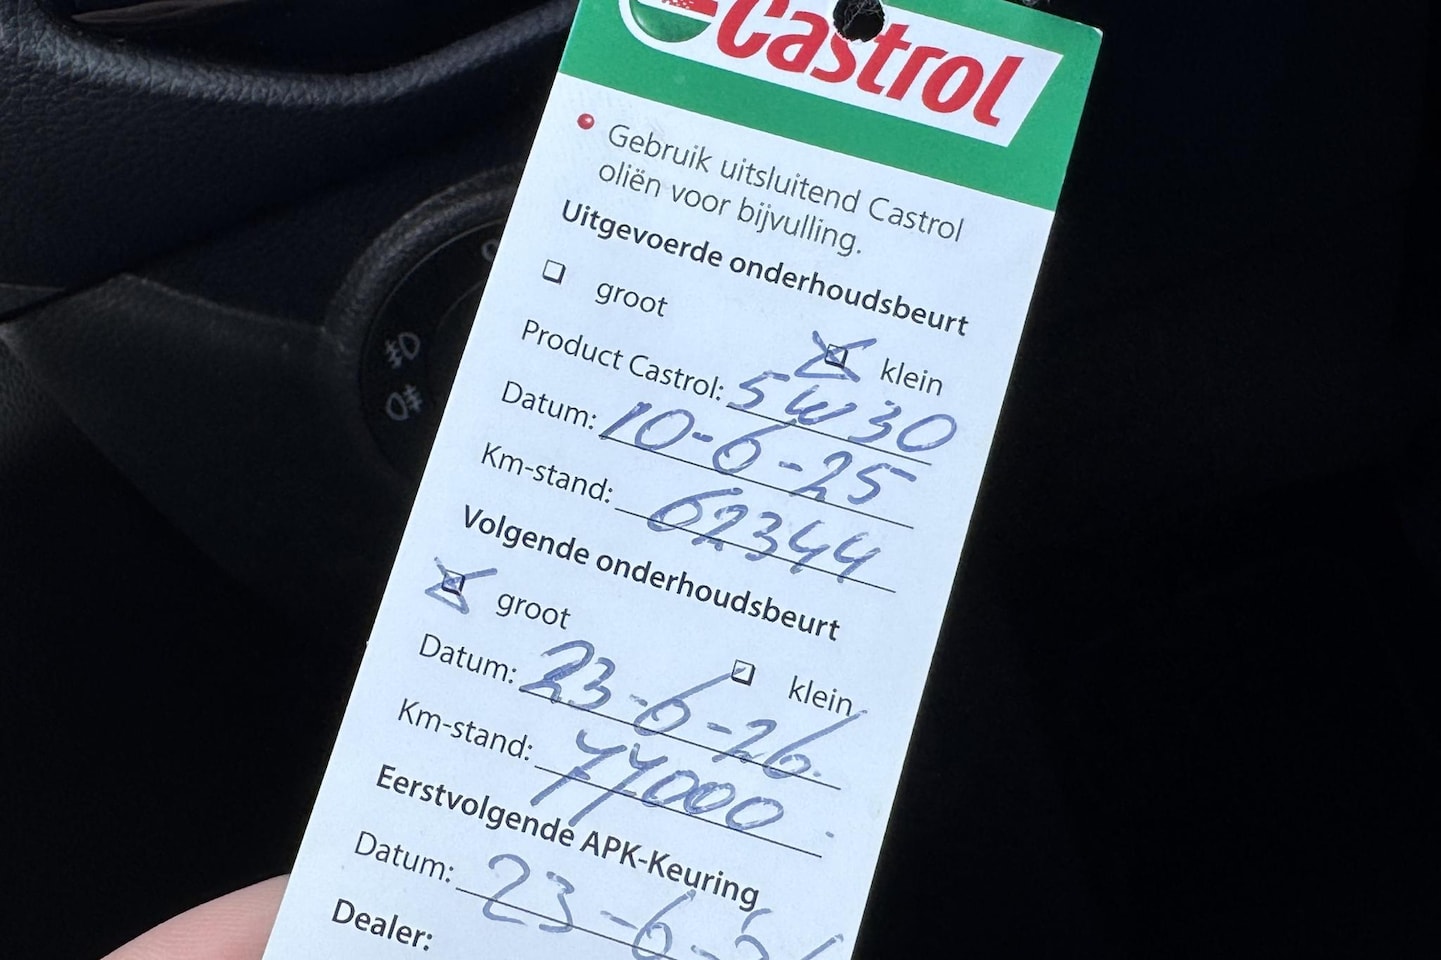 Castrol
Gebruik uitsluitend Castrol
oliën voor bijvulling.
Uitgevoerde onderhoudsbeurt
groot
klein
Product Castrol: 5W30
Datum: 10-6-25
Km-stand: 62344
Volgende onderhoudsbeurt
groot
klein
Datum: 23-6-26.
Km-stand: 77000.
Eerstvolgende APK-Keuring
Datum: 23-6-
Dealer: